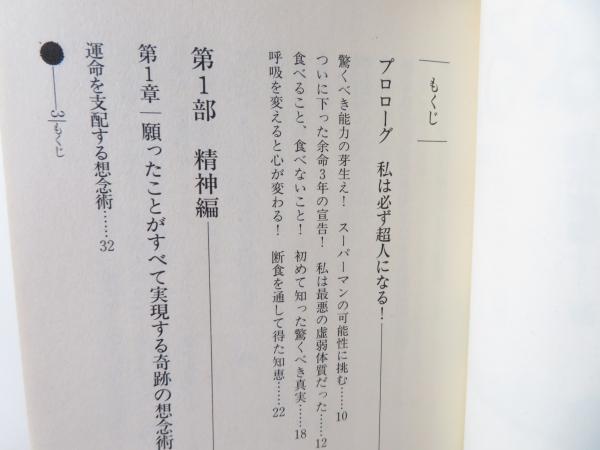 もくじ
プロローグ 私は必ず超人になる!
驚くべき能力の芽生え! スーパーマンの可能性に挑む……10
ついに下った余命3年の宣告! 私は最悪の虚弱体質だった……12
食べること、食べないこと! 初めて知った驚くべき真実……18
呼吸を変えると心が変わる! 断食を通して得た知恵……22
第1部 精神編
第1章 願ったことがすべて実現する奇跡の想念術
運命を支配する想念術……32
3 もくじ